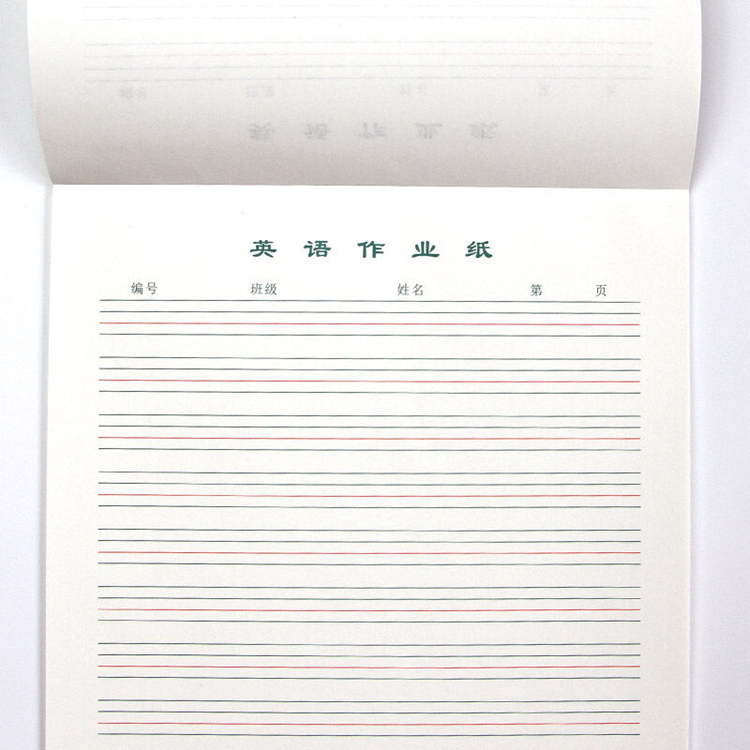 英语作业纸
编号 班级 姓名 第 页